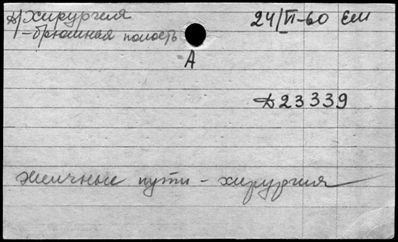 Д/хирургия 24/VI-60 ЕМ
-брюшная полость
А
Д23339
желчные пути - хирургия